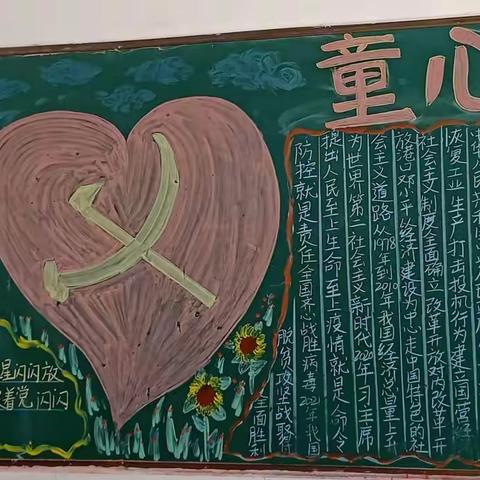 童心
恢复工业生产打击投机行为建立国营经
社会主义制度全面确立改革开放对内改革开
放港口邓小平以经济建设为中心走中国特色的社
会主义道路从1978年到2010年我国经济总量上升
为世界第一社会主义新时代2020年习主席
提出人民至上生命至上疫情就是命令
防控就是责任全国齐心战胜病毒2021年我国
脱贫攻坚战取得
全面胜利
星闪闪放
着党闪闪